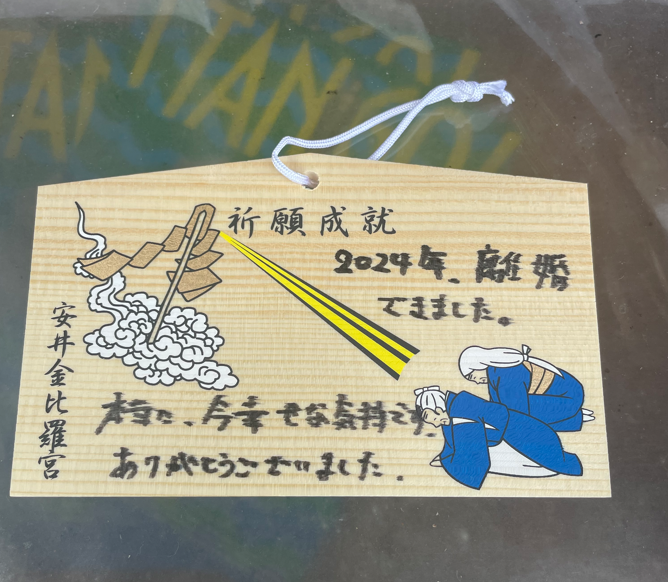 祈願成就
2024年、離婚
できました。
本当に、今幸せな気持です。
ありがとうございました。
安井金比羅宮